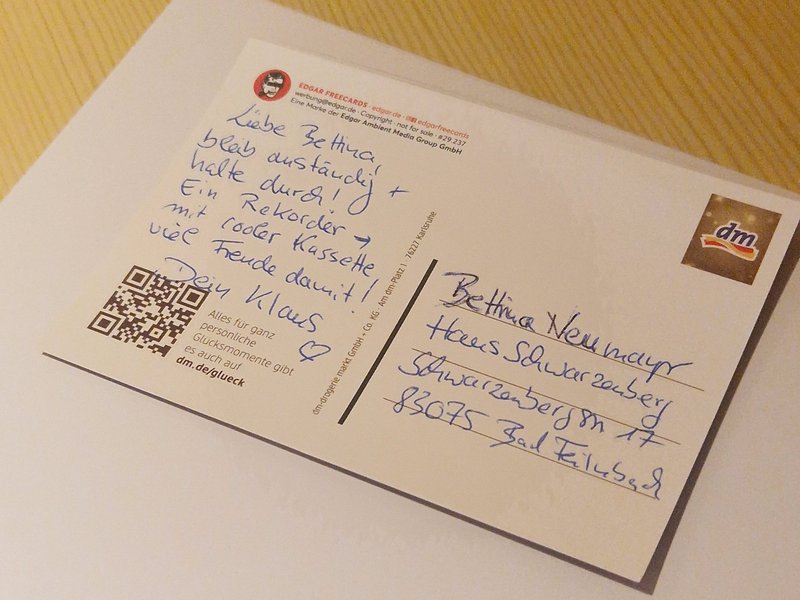 EDGAR FREECARDS · edgar.de · edgarfreecards
werbung@edgar.de · Copyright · not for sale · #29.237
Eine Marke der Edgar Ambient Media Group GmbH
Liebe Bettina,
bleib anständig +
halte durch!
Ein Rekorder →
mit cooler Kassette
viel Freude damit!
Dein Klaus
♡
Alles für ganz
persönliche
Glücksmomente gibt
es auch auf
dm.de/glueck
dm-drogerie markt GmbH + Co. KG · Am dm-Platz 1 · 76227 Karlsruhe
dm
Bettina Neumayr
Haus Schwarzenberg
Schwarzenbergstr. 17
83075 Bad Feilnbach